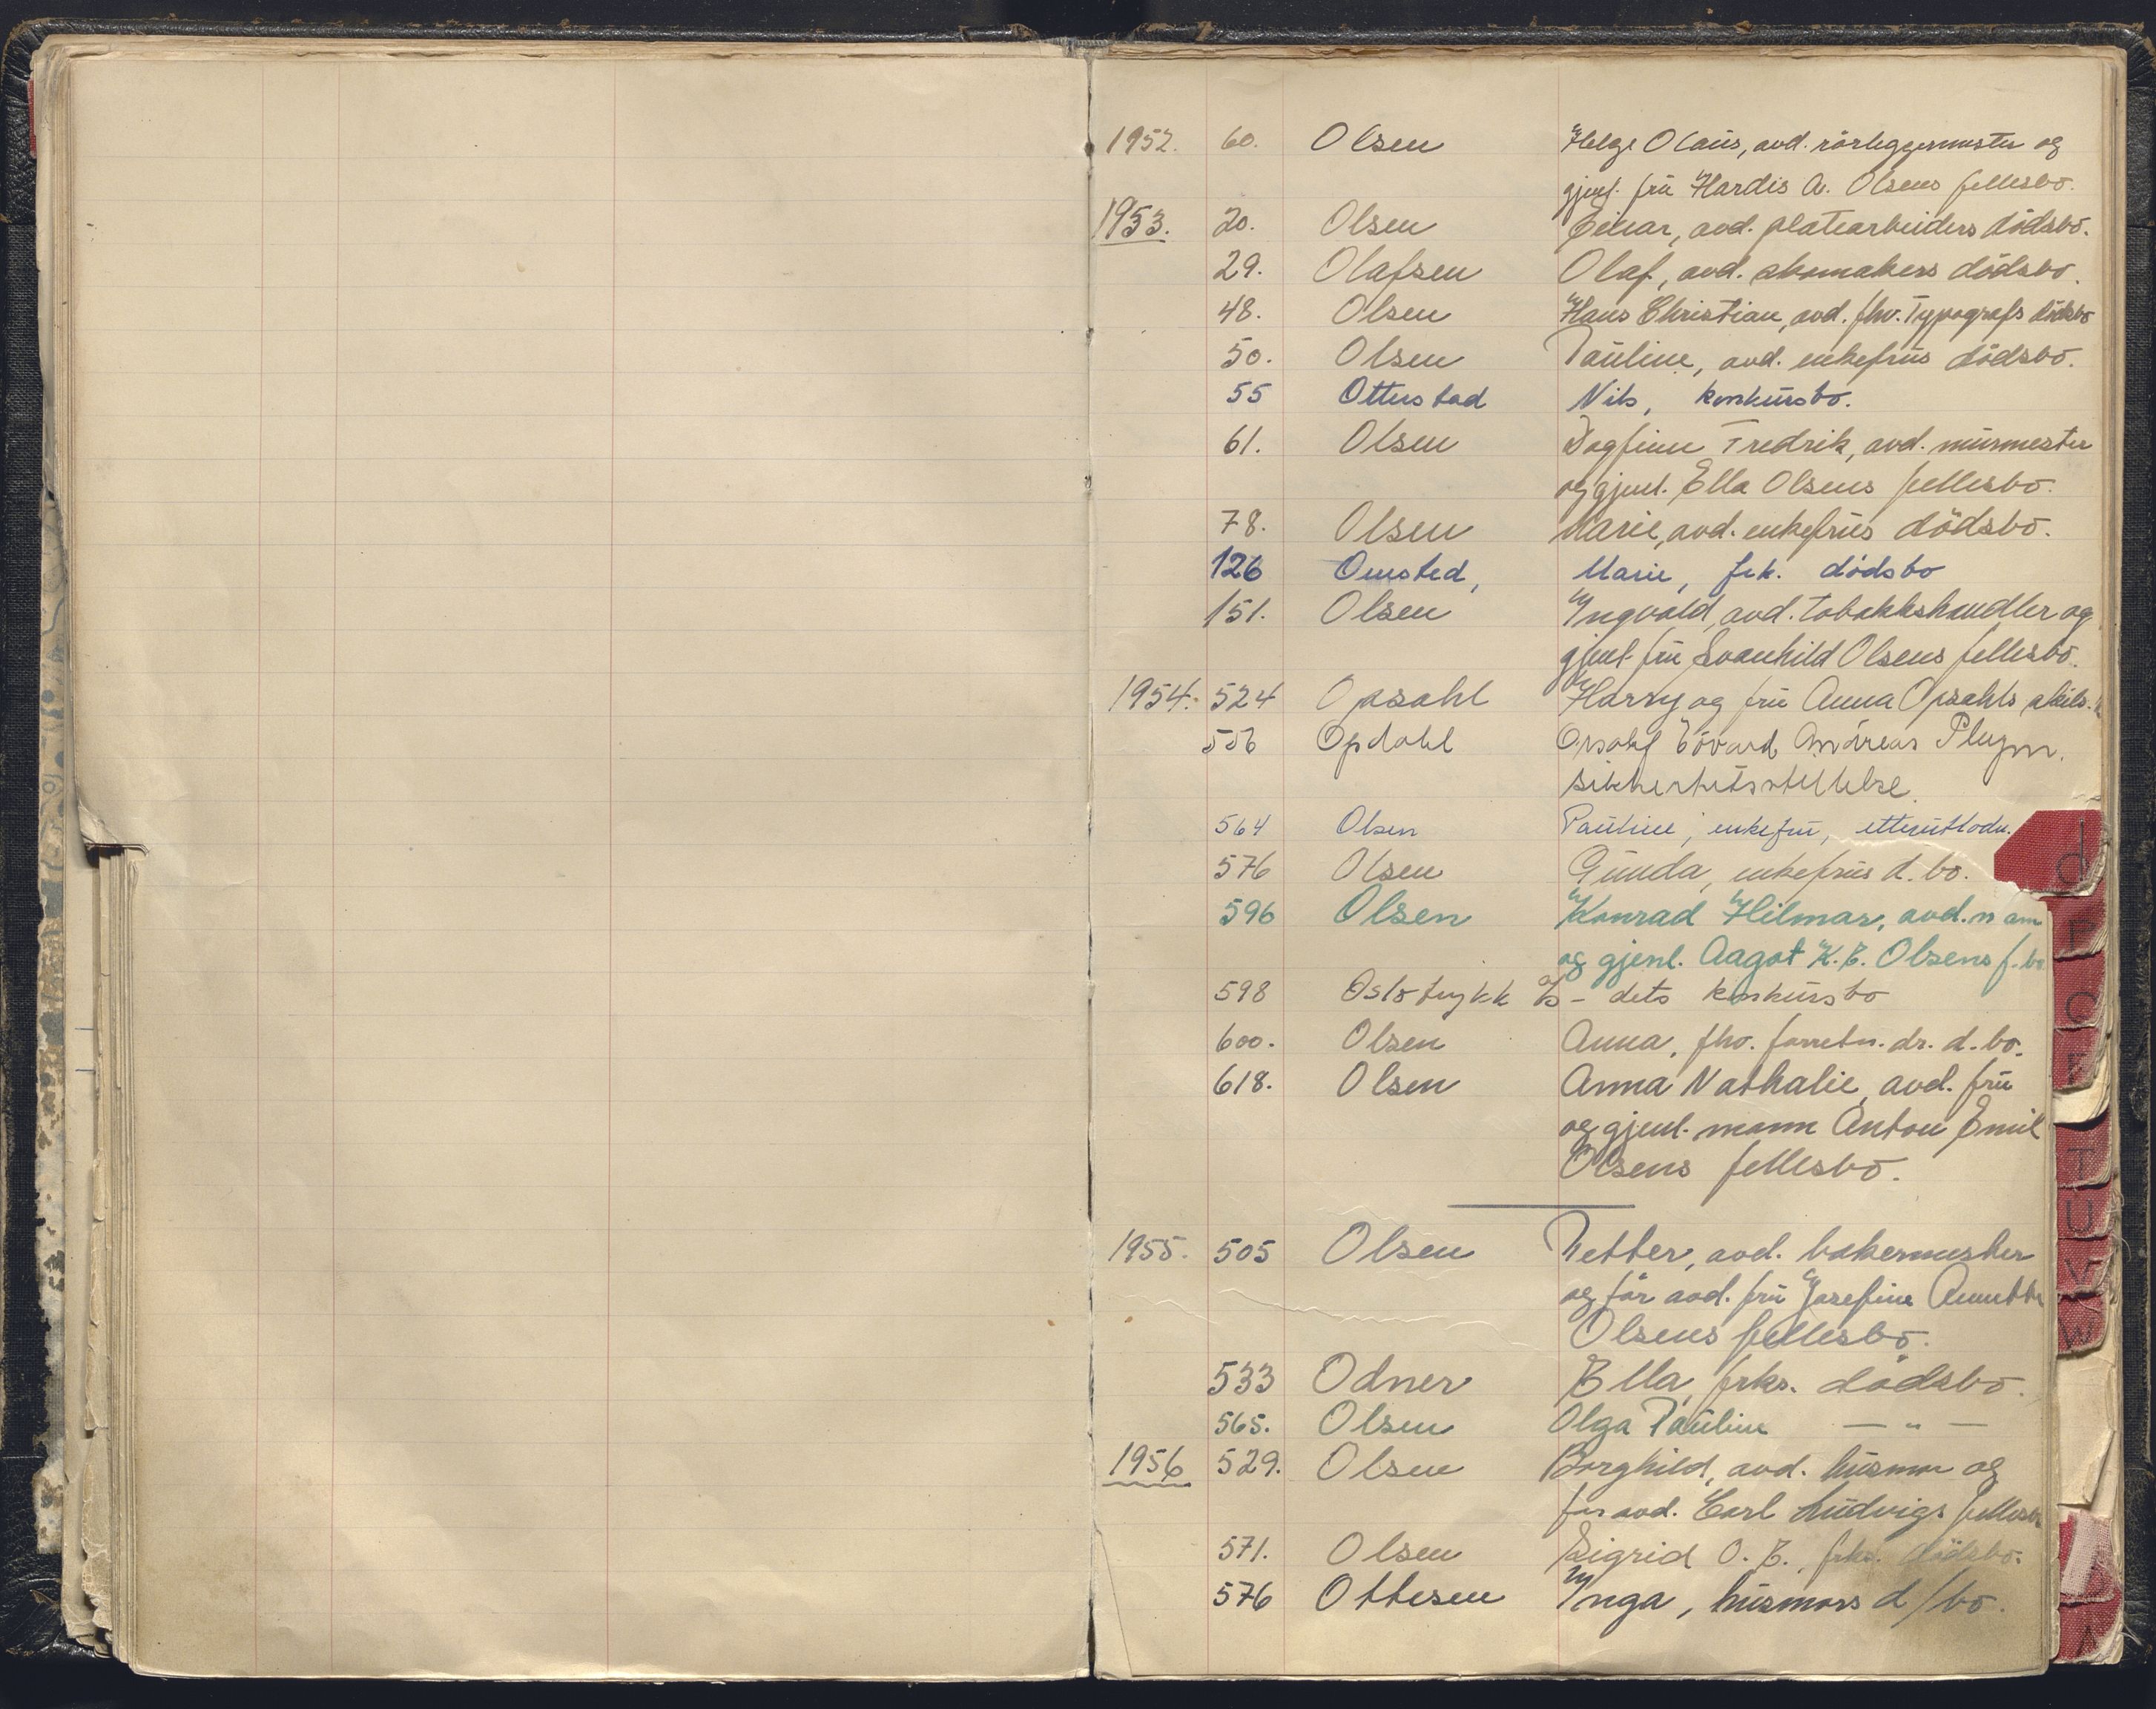 1952. 60. Olsen Helge Olaus, avd. rörleggermester og
gjenl. frü Hardis A. Olsens fellesbo.
1953. 20. Olsen Einar, avd. platearbeiders dödsbo.
29. Olafsen Olaf, avd. skomakers dödsbo.
48. Olsen Hans Christian, avd. fhv. Typografs dödsbo
50. Olsen Pauline, avd. enkefrüs dödsbo.
55 Otterstad Nils, konkürsbo.
61. Olsen Dagfinn Fredrik, avd. mürmester
og gjenl. Ella Olsens fellesbo.
78. Olsen Marie, avd. enkefrüs dödsbo.
126 Omsted, Marie, frk. dödsbo
151. Olsen Yngvald, avd. tobakkshandler og
gjenl. frü Svanhild Olsens fellesbo.
1954. 524 Opsahl Harry og frü Anna Opsahls skils.
556 Opdahl Edvard Andreas Plym.
sikkerhetsstillelse.
564 Olsen Pauline, enkefrü,
576 Olsen Günda, enkefrüs d. bo.
596 Olsen Konrad Hilmar, avd.
og gjenl. Aagot K. E. Olsens f. bo
598 Oslotrykk A/S - dets konkürsbo
600. Olsen Anna, fhv. forretn. dr. d. bo.
618. Olsen Anna Nathalie, avd. frü
og gjenl. mann Anton Emil
Olsens fellesbo.
1955. 505 Olsen Petter, avd. bakermester
og för avd. frü Josefine Annette
Olsens fellesbo.
533 Odner Ella, frks. dödsbo.
565. Olsen Olga Pauline — " —
1956 529. Olsen Borghild, avd. hüsmor og
för avd. Carl Lüdvigs fellesbo
571. Olsen Sigrid O. E., frks. dödsbo.
576 Ottesen Ynga, hüsmors d/bo.
d
T
U
V
W